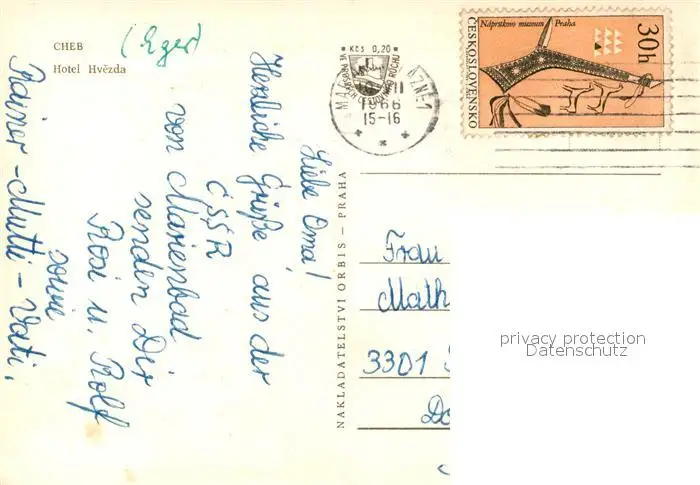 CHEB
(Eger)
Hotel Hvězda
Liebe Oma!
Herzliche Grüße aus der
ČSSR
von Marienbad
senden Dir
Rosi u. Rolf
sowie
Rainer - Mutti - Vati.
NAKLADATELSTVÍ ORBIS – PRAHA
Kčs 0,20
1966
15-16
Náprstkovo museum Praha
30h
ČESKOSLOVENSKO
Frau
Math
3301
privacy protection
Datenschutz